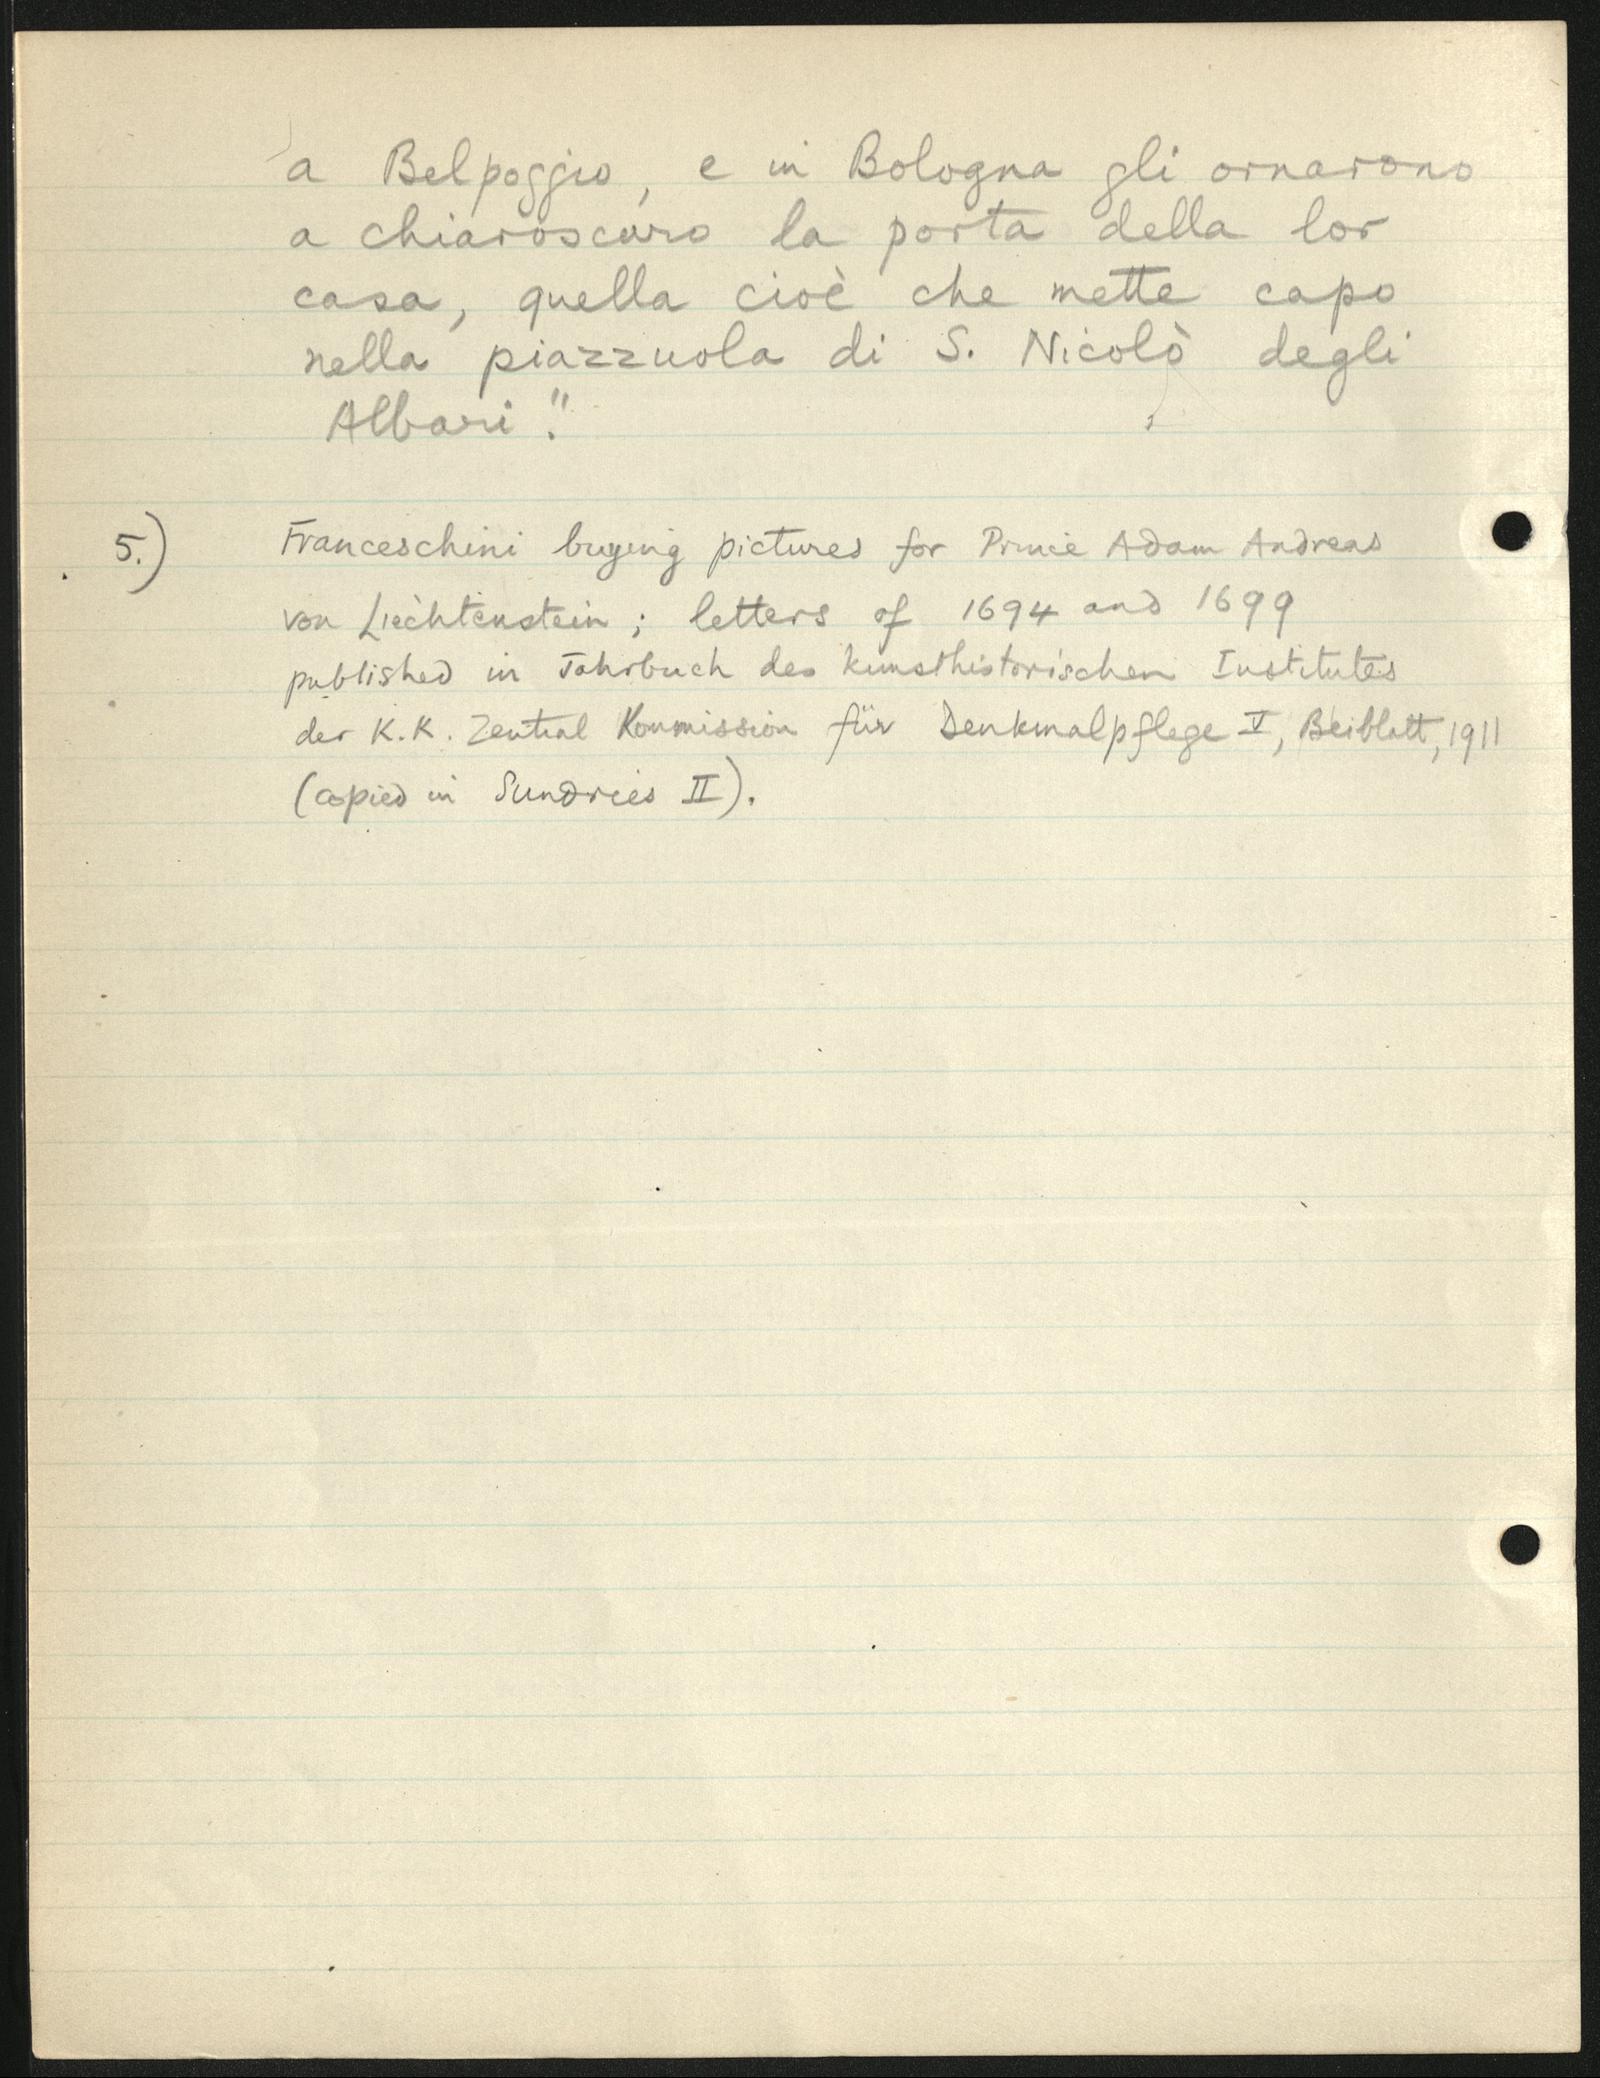 a Belpoggio, e in Bologna gli ornarono
a chiaroscuro la porta della lor
casa, quella cioè che mette capo
nella piazzuola di S. Nicolò degli
Albari."
5.) Franceschini buying pictures for Prince Adam Andreas
von Liechtenstein; letters of 1694 and 1699
published in Jahrbuch des kunsthistorischen Institutes
der K.K. Zentral Kommission für Denkmalpflege V, Beiblatt, 1911
(copied in Sundries II).